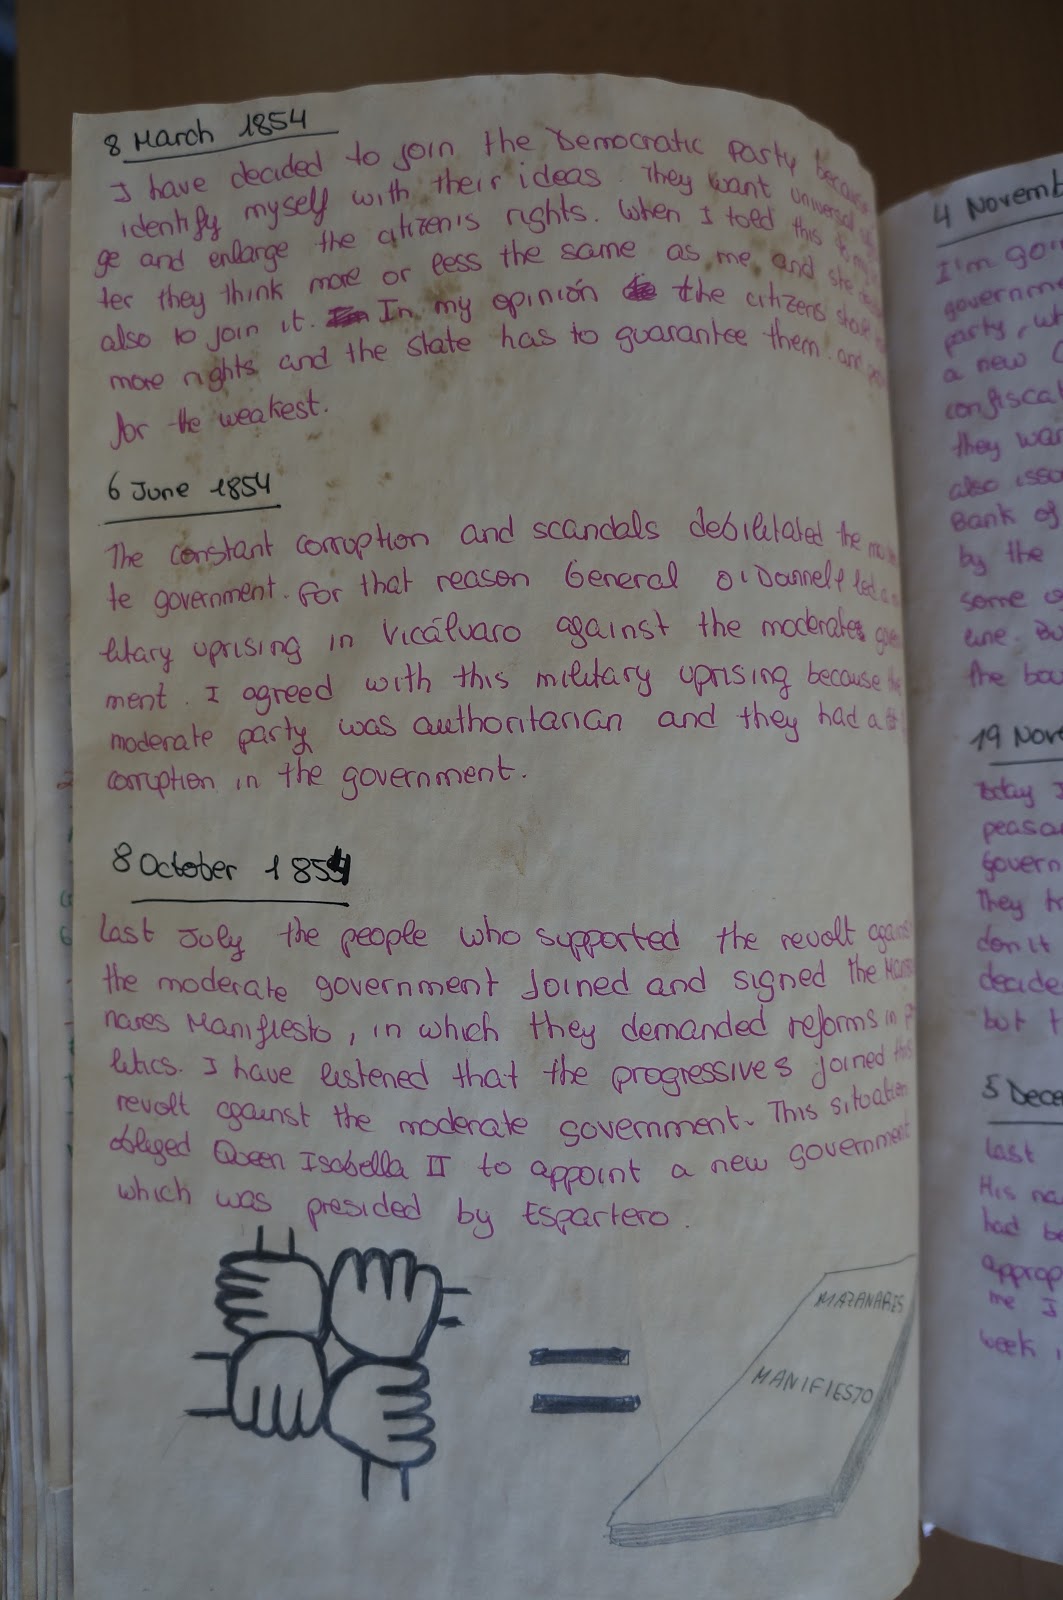 8 March 1854
I have decided to join the Democratic Party because
identify myself with their ideas. They want universal
ge and enlarge the citizen's rights. When I told this to my
ter they think more or less the same as me, and she
also to join it. In my opinion the citizens
more rights and the state has to guarantee them and
for the weakest.
6 June 1854
The constant corruption and scandals debilitated the mo
te government. For that reason General O'Donnell led a
litary uprising in Vicálvaro against the moderates
ment. I agreed with this military uprising because the
moderate party was authoritarian and they had a
corruption in the government.
8 October 1854
Last July the people who supported the revolt against
the moderate government joined and signed the
nares Manifiesto, in which they demanded reforms in
litics. I have listened that the progressives joined this
revolt against the moderate government. This situation
obliged Queen Isabella II to appoint a new government
which was presided by Espartero.
MAZANARES
MANIFIESTO
4 Novemb
I'm goi
governme
party, wh
a new
confisca
they wa
also issu
Bank of
by the
some
line.
the
19 Nov
Today I
peasa
Govern
They h
don't
decide
but t
5 Dece
Last
His na
had be
approp
me I
week,